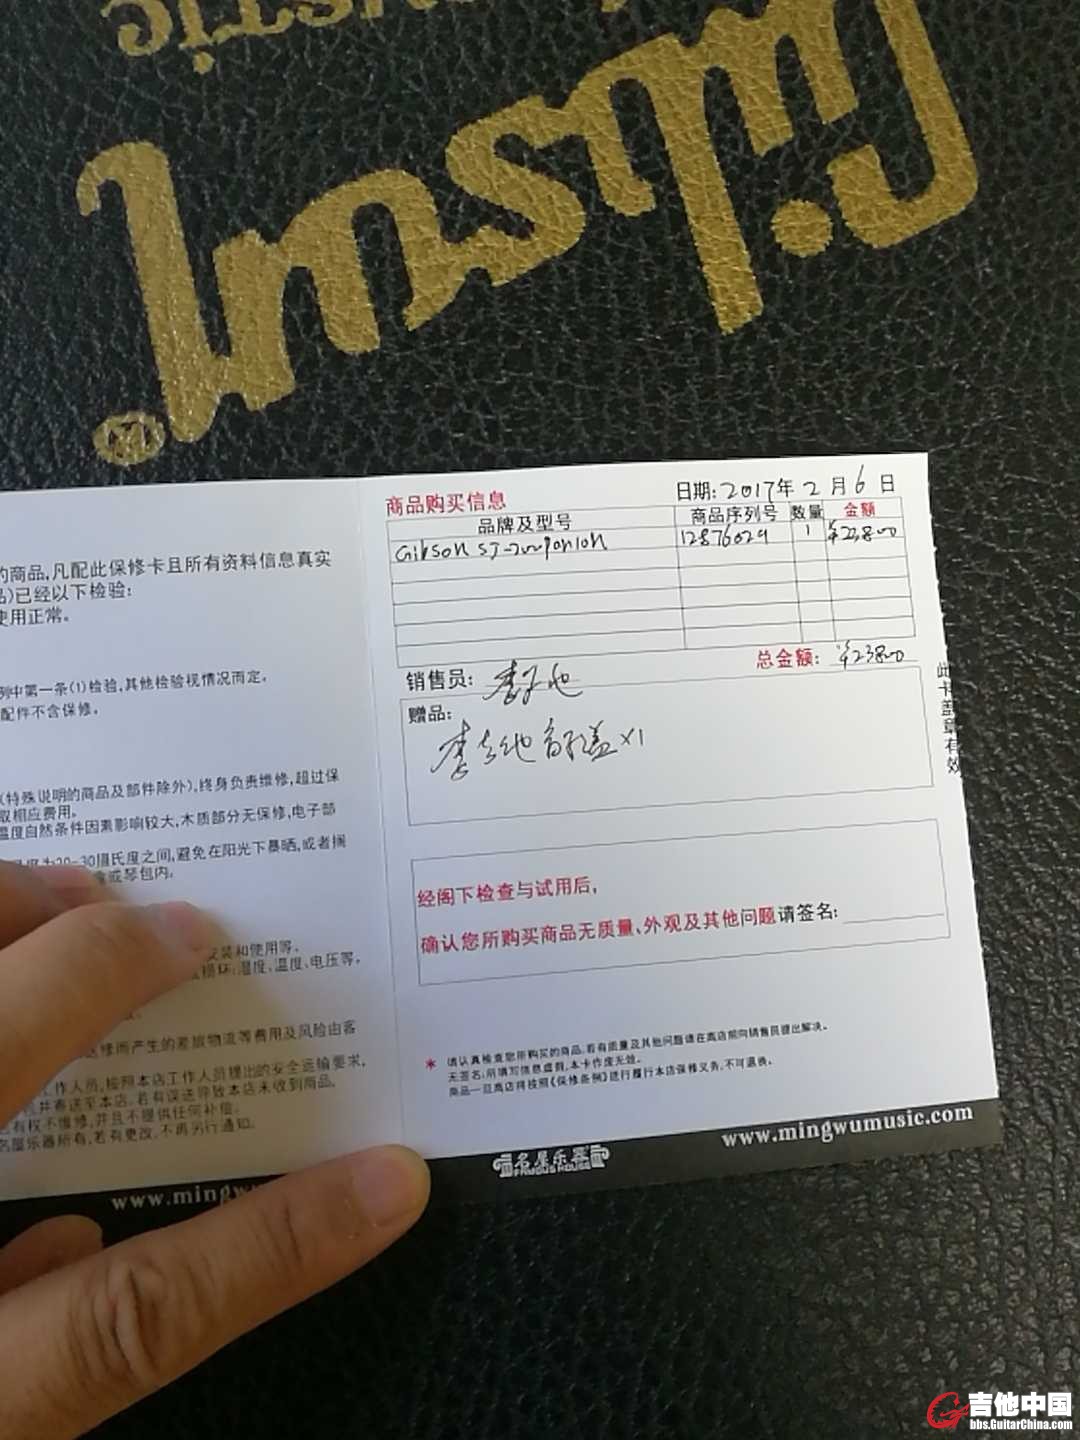 Gibson
商品购买信息
日期: 2017年 2 月 6 日
品牌及型号 商品序列号 数量 金额
Gibson 12876029 1 ¥23800
总金额: ¥23800
销售员:
赠品:
X1
此卡盖章有效
经阁下检查与试用后,
确认您所购买商品无质量、外观及其他问题请签名:
* 请认真检查您所购买的商品,若有质量及其他问题请在离店前向销售员提出解决。
无签名;所填写信息虚假,本卡作废无效。
商品一旦离店将按照《保修条例》进行履行本店保修义务,不可退换。
名屋乐器
FAMOUS HOUSE
www.mingwumusic.com
的商品,凡配此保修卡且所有资料信息真实
品)已经以下检验:
使用正常。
例中第一条(1)检验,其他检验视情况而定。
配件不含保修。
(特殊说明的商品及部件除外),终身负责维修,超过保
取相应费用。
温度自然条件因素影响较大,木质部分无保修,电子部
20-30摄氏度之间,避免在阳光下暴晒,或者搁
或琴包内。
安装和使用等。
损坏:湿度、温度、电压等。
送修而产生的差旅物流等费用及风险由客
工作人员,按照本店工作人员提出的安全运输要求,
并寄送至本店。若有误送导致本店未收到商品。
有权不维修,并且不提供任何补偿。
名屋乐器所有,若有更改,不再另行通知。
www.mingw
吉他中国
bbs.GuitarChina.com